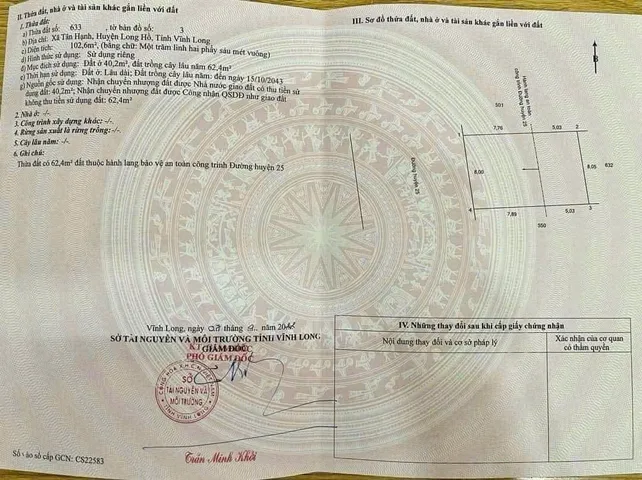 II. Thửa đất, nhà ở và tài sản khác gắn liền với đất
1. Thửa đất:
a) Thửa đất số: 633 , tờ bản đồ số: 3
b) Địa chỉ: Xã Tân Hạnh, Huyện Long Hồ, Tỉnh Vĩnh Long
c) Diện tích: 102,6m², (bằng chữ: Một trăm linh hai phẩy sáu mét vuông)
d) Hình thức sử dụng: Sử dụng riêng
đ) Mục đích sử dụng: Đất ở 40,2m², đất trồng cây lâu năm 62,4m²
e) Thời hạn sử dụng: Đất ở: Lâu dài; Đất trồng cây lâu năm: đến ngày 15/10/2043
g) Nguồn gốc sử dụng: Nhận chuyển nhượng đất được Nhà nước giao đất có thu tiền sử
dụng đất: 40,2m²; Nhận chuyển nhượng đất được Công nhận QSDĐ như giao đất
không thu tiền sử dụng đất: 62,4m²
2. Nhà ở: -/-
3. Công trình xây dựng khác: -/-
4. Rừng sản xuất là rừng trồng: -/-
5. Cây lâu năm: -/-
6. Ghi chú:
Thửa đất có 62,4m² đất thuộc hành lang bảo vệ an toàn công trình Đường huyện 25
Vĩnh Long, ngày tháng năm
SỞ TÀI NGUYÊN VÀ MÔI TRƯỜNG TỈNH VĨNH LONG
KT. GIÁM ĐỐC
PHÓ GIÁM ĐỐC
SỞ
TÀI NGUYÊN VÀ
MÔI TRƯỜNG
Trần Minh Khởi
Số vào sổ cấp GCN: CS22583
III. Sơ đồ thửa đất, nhà ở và tài sản khác gắn liền với đất
B
501
Hành lang an toàn
công trình Đường huyện 25
1
7,76
5,03
2
Đường huyện 25
8,00
8,05
632
4
7,89
5,03
3
550
IV. Những thay đổi sau khi cấp giấy chứng nhận
Nội dung thay đổi và cơ sở pháp lý
Xác nhận của cơ quan
có thẩm quyền